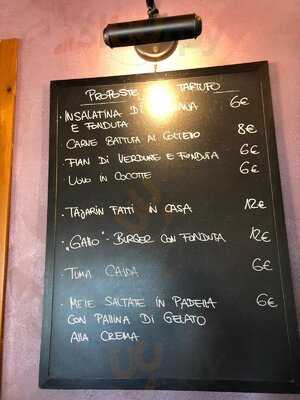 PROPOSTE TARTUFO
· INSALATINA DI 6€
E FONDUTA
· CARNE BATTUTA AL COLTELLO 8€
· FLAN DI VERDURE E FONDUTA 6€
· UOVO IN COCOTTE 6€
· TAJARIN FATTI IN CASA 12€
· "GALLO" - BURGER CON FONDUTA 12€
· TUMA CALDA 6€
· MELE SALTATE IN PADELLA 6€
CON PALLINA DI GELATO
ALLA CREMA